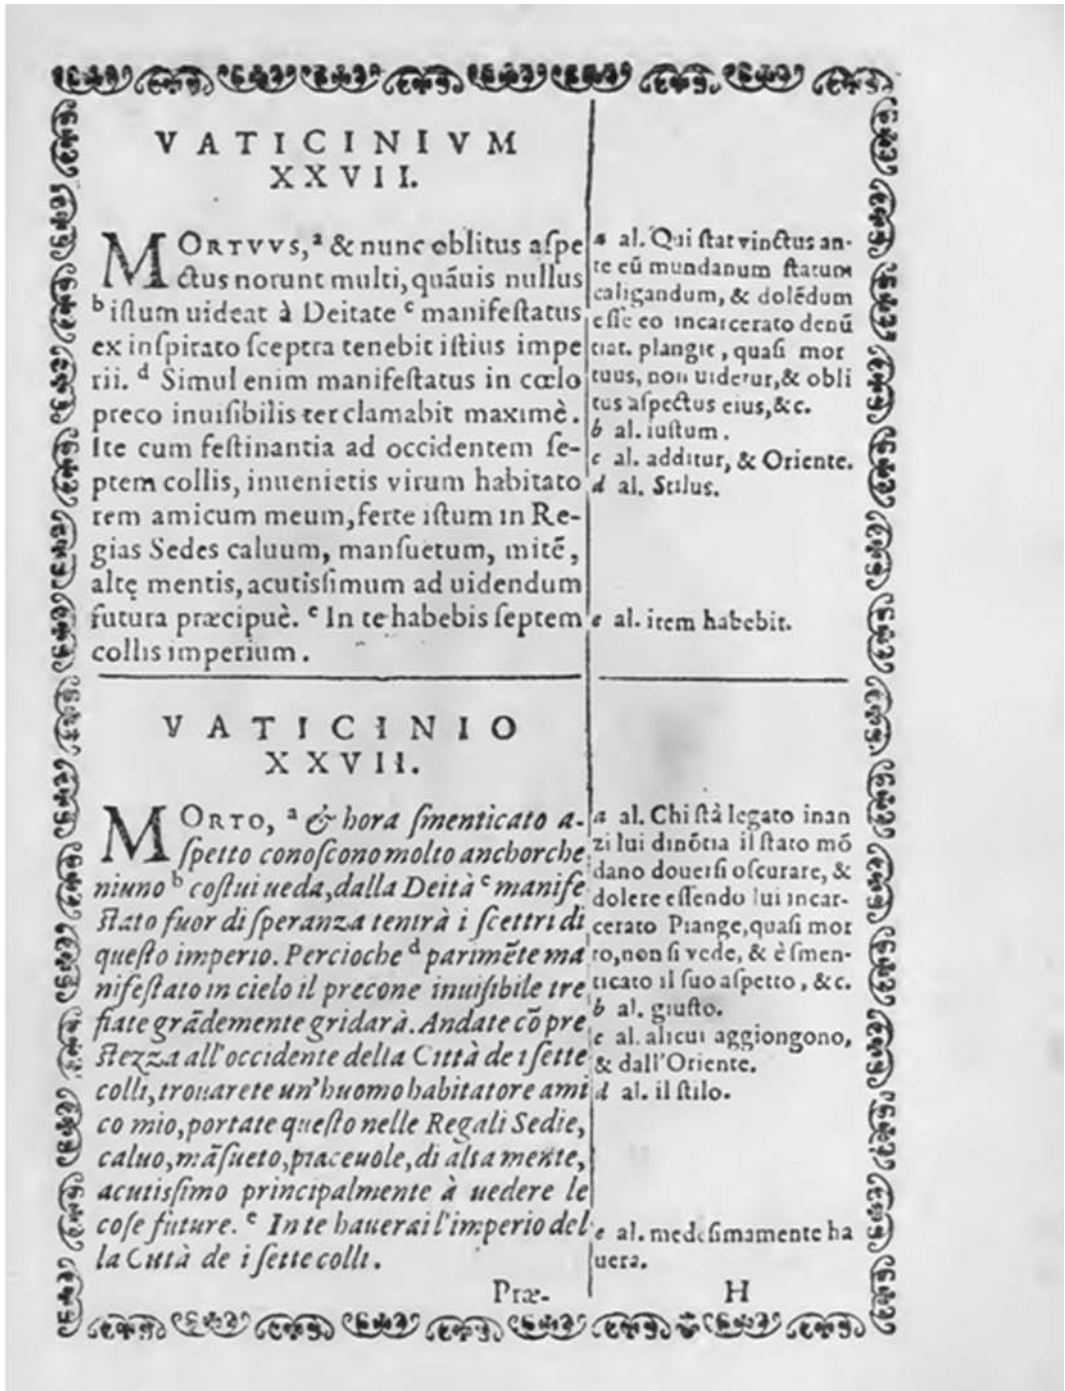 VATICINIVM
XXVII.
MORTVVS, a & nunc oblitus aſpe
ctus norunt multi, quāuis nullus
b iſtum uideat à Deitate c manifeſtatus
ex inſpirato ſceptra tenebit iſtius impe
rii. d Simul enim manifeſtatus in cœlo
preco inuiſibilis ter clamabit maximè.
Ite cum feſtinantia ad occidentem ſe-
ptem collis, inuenietis virum habitato
rem amicum meum, ferte iſtum in Re-
gias Sedes caluum, manſuetum, mitē,
altę mentis, acutiſsimum ad uidendum
futura præcipuè. e In te habebis ſeptem
collis imperium.
a al. Qui ſtat vinctus an-
te eū mundanum ſtatum
caligandum, & dolēdum
eſſe eo incarcerato denū
ciat. plangit, quaſi mor
tuus, non uidetur, & obli
tus aſpectus eius, &c.
b al. iuſtum.
c al. additur, & Oriente.
d al. Stilus.
e al. item habebit.
VATICINIO
XXVII.
MORTO, a & hora ſmenticato a-
ſpetto conoſcono molto anchorche
niuno b coſtui ueda, dalla Deità c manife
ſtato fuor di ſperanza tenirà i ſcettri di
queſto imperio. Percioche d parimēte ma
nifeſtato in cielo il precone inuiſibile tre
fiate grādemente gridarà. Andate cō pre
ſtezza all'occidente della Città de i ſette
colli, trouarete un'huomo habitatore ami
co mio, portate queſto nelle Regali Sedie,
caluo, māſueto, piaceuole, di alta mente,
acutiſsimo principalmente à uedere le
coſe future. e In te hauerai l'imperio del
la Città de i ſette colli.
a al. Chi ſtà legato inan
zi lui dinōtia il ſtato mō
dano douerſi oſcurare, &
dolere eſſendo lui incar-
cerato Piange, quaſi mor
to, non ſi vede, & è ſmen-
ticato il ſuo aſpetto, &c.
b al. giuſto.
c al. alicui aggiongono,
& dall'Oriente.
d al. il ſtilo.
e al. medeſimamente ha
uera.
Præ-
H